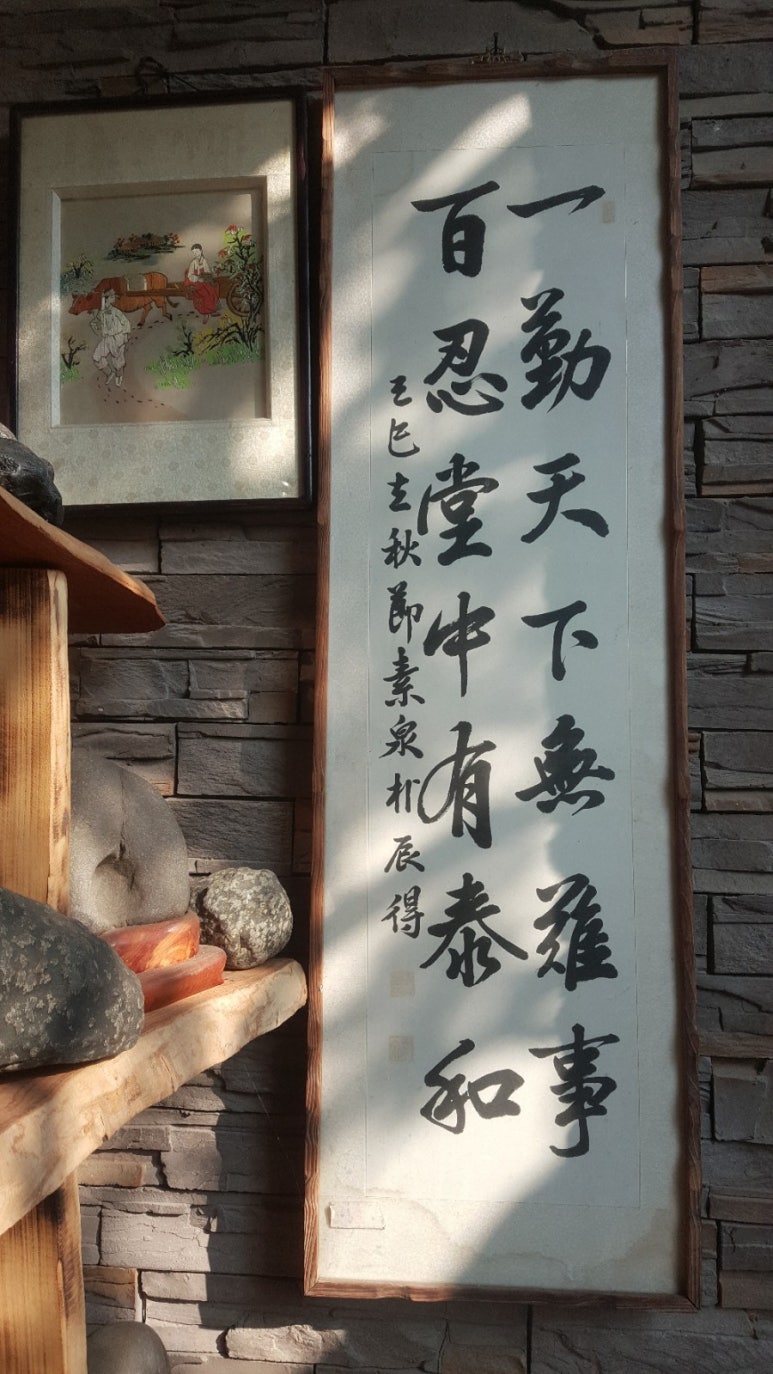 一勤天下無難事
百忍堂中有泰和
己巳立秋節素泉朴辰得